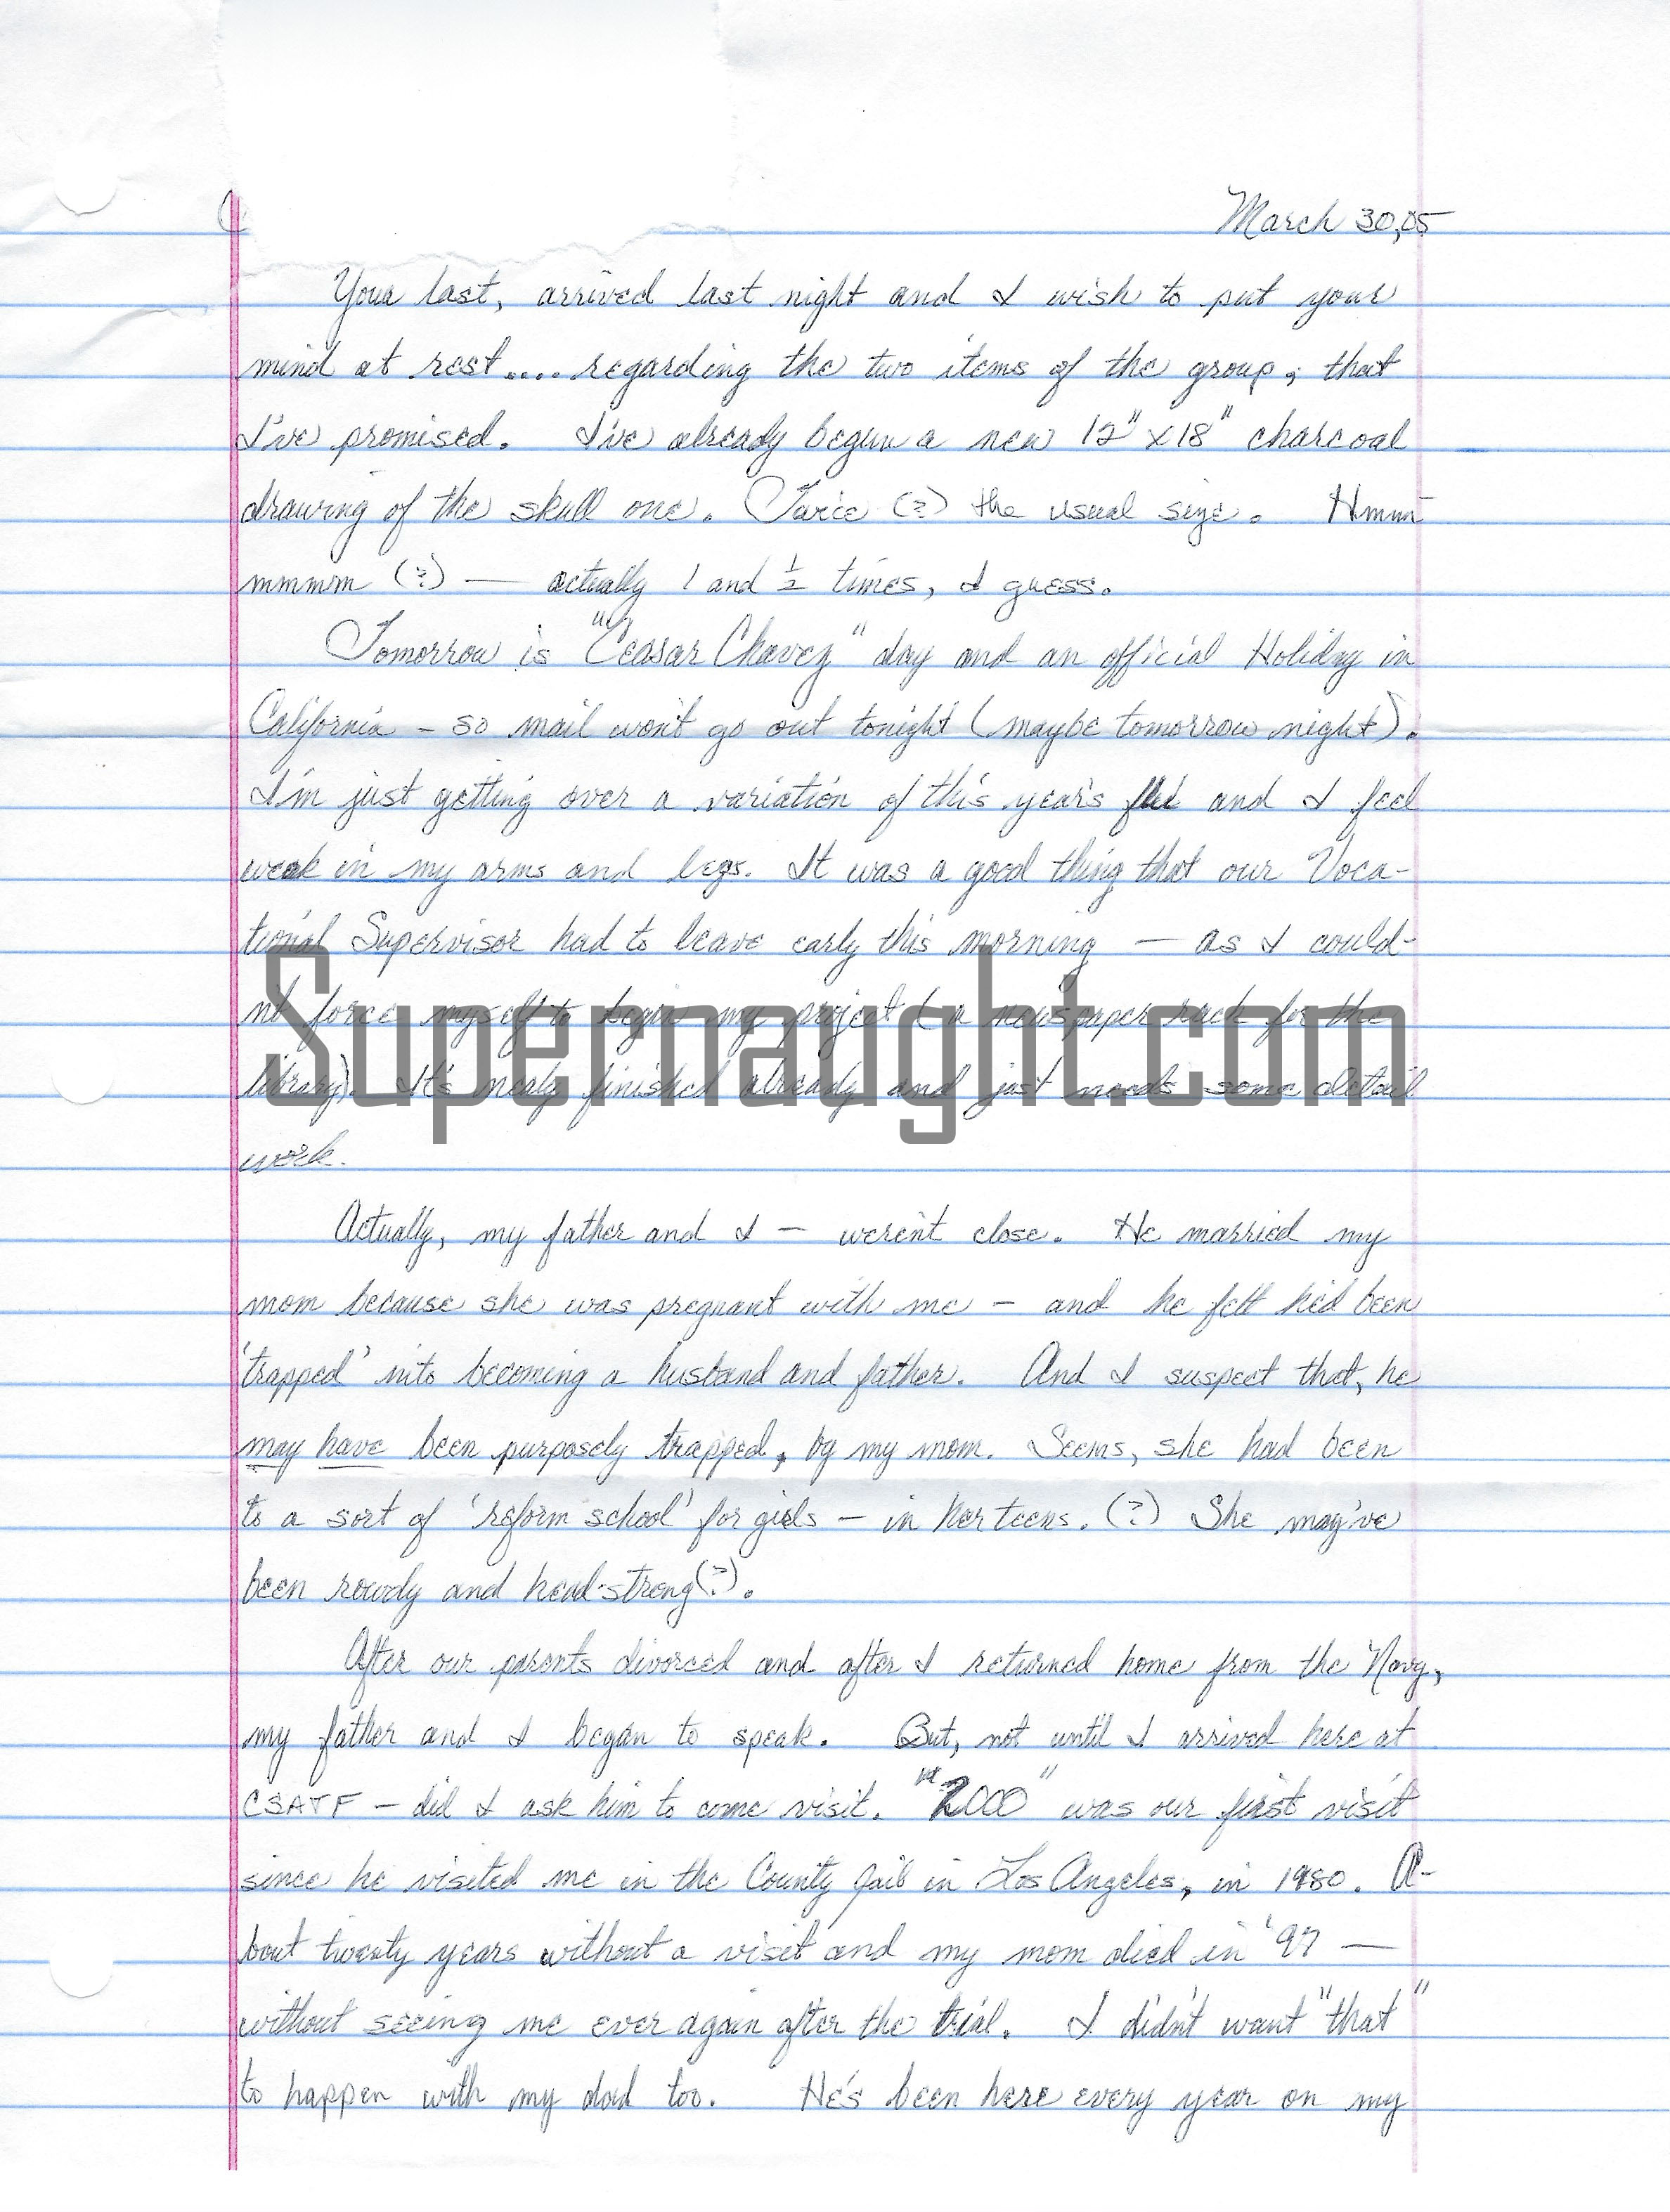 March 30, 05
Your last, arrived last night and I wish to put your
mind at rest.... regarding the two items of the group, that
I've promised. I've already begun a new 12" x 18" charcoal
drawing of the skull one. Twice (?) the usual size. Hmmm
mmmm (?) — actually 1 and ½ times, I guess.
Tomorrow is "Ceasar Chavez" day and an official Holiday in
California - so mail won't go out tonight (maybe tomorrow night).
I'm just getting over a variation of this year's flu and I feel
weak in my arms and legs. It was a good thing that our Voca-
tional Supervisor had to leave early this morning — as I could-
n't force myself to begin my project (a newspaper rack for the
library). It's nearly finished already and just needs some detail
work.
Supernaught.com
Actually, my father and I — weren't close. He married my
mom because she was pregnant with me - and he felt he'd been
'trapped' into becoming a husband and father. And I suspect that, he
may have been purposely trapped, by my mom. Seems, she had been
to a sort of 'reform school' for girls - in her teens. (?) She may've
been rowdy and head-strong (?).
After our parents divorced and after I returned home from the Navy,
my father and I began to speak. But, not until I arrived here at
CSATF - did I ask him to come visit. "2000" was our first visit
since he visited me in the County Jail in Los Angeles, in 1980. A-
bout twenty years without a visit and my mom died in '97 —
without seeing me ever again after the trial. I didn't want "that"
to happen with my dad too. He's been here every year on my